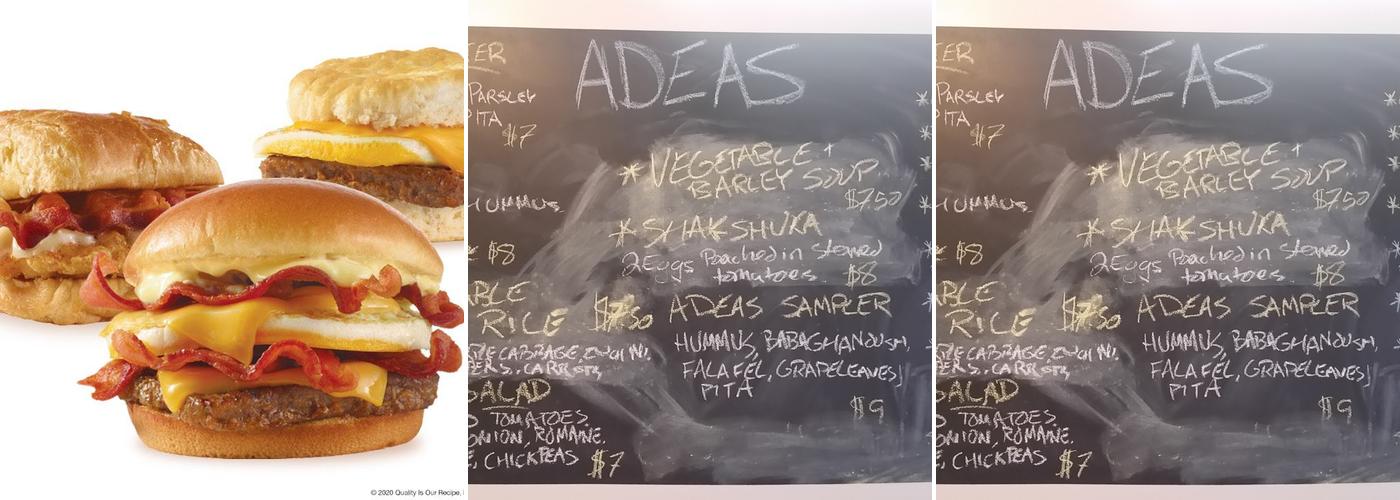 © 2020 Quality Is Our Recipe,
ADEAS
PARSLEY
PITA
$7
* VEGETABLE +
BARLEY SOUP
$7.50
HUMMUS
* SHAKSHUKA
$8
2 Eggs Poached in Stewed
tomatoes $8
RICE $7.50
ADEAS SAMPLER
HUMMUS, BABAGHANOUSH,
FALAFEL, GRAPELEAVES,
PITA
$9
CABBAGE,
SALAD
TOMATOES
ONION, ROMAINE.
CHICKPEAS $7
ADEAS
PARSLEY
PITA
$7
* VEGETABLE +
BARLEY SOUP
$7.50
HUMMUS
* SHAKSHUKA
$8
2 Eggs Poached in Stewed
tomatoes $8
RICE $7.50
ADEAS SAMPLER
HUMMUS, BABAGHANOUSH,
FALAFEL, GRAPELEAVES,
PITA
$9
CABBAGE,
SALAD
TOMATOES.
ONION, ROMAINE.
CHICKPEAS $7